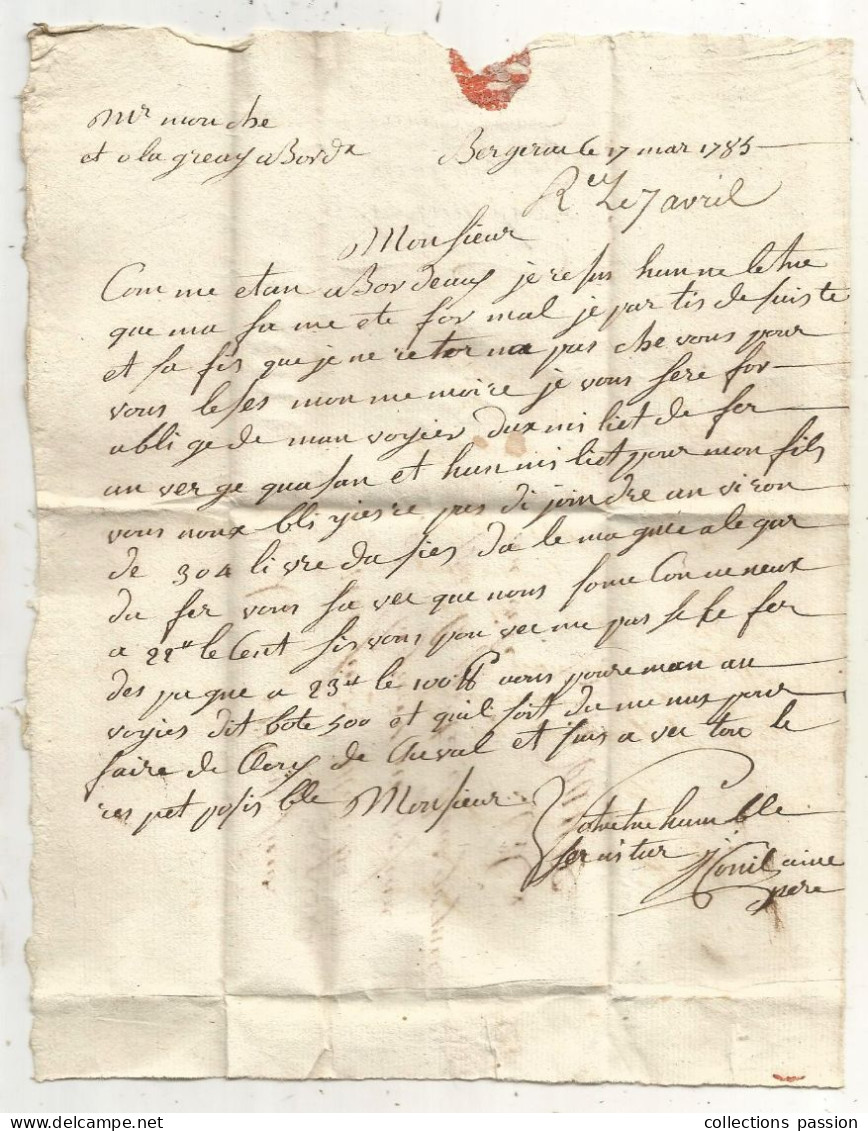 Mr mouche
et o la greay a Bordx
Bergerac le 17 mar 1785
Rcu Le 7 avril
Monsieur
Comme etan a Bordeaux je resus hun ne letre
que ma fa me ete for mal je par tis de suis te
et sa fis que je ne retor na pas che vous pour
vous leses mon me moire je vous sere for
obli ge de man voyier dux mi liet de fer
an ver ge quasan et hun mi liet pour mon fils
vous noux bli yiesre pas di joindre an viron
de 304 livre da sies da le ma gnie a le gar
du fer vous sa ver que nous some Con ne neux
a 22tt le Cent sis vous pou ver me pas se le fer
des pa gne a 23tt le 100 lb vous poure man au
voyies dit bote 500 et quil soit du me nus pour
faire de Cloux de Cheval et suis a vec tou le
res pet posis ble Monsieur
Votre tre humble
serviteur
aine
pere
collections passion